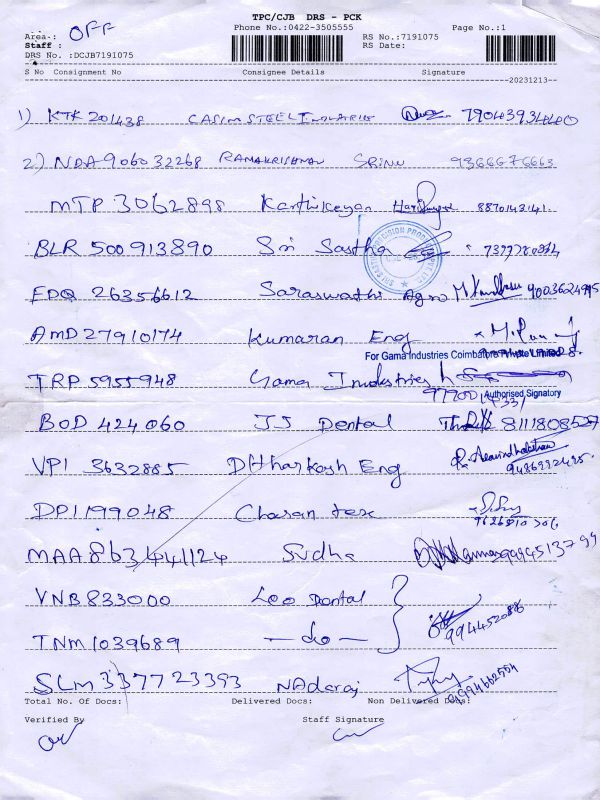 TPC/CJB DRS - PCK
Area-: OFF Phone No.:0422-3505555 RS No.:7191075 Page No.:1
Staff : RS Date:
DRS No. :DCJB7191075
S No Consignment No Consignee Details Signature
20231213
1) KTK 201438 CASIM STEEL
2) NDA 906032268 RAMAKRISHNAN SRINU 9366676663
MTP 3062898 Karthikeyan 8870143141.
BLR 500913890 Sri Sastha
EDQ 26356612 Saraswathi Agro 9003624995
AMD 27910174 Kumaran Eng
For Gama Industries Coimbatore Private Limited
TRP 5955948 Gama Industries
Authorised Signatory
BOD 424060 JJ Dental 8111808527
VPI 3632885 Eng
DPI 199048 Charan tex
MAA 863441124 Sudha 9994513799
VNB 833000 Leo Dental
TNM 1039689 — do — 9944520886
SLM 337723393 NAdaraj 9994662554
Total No. Of Docs: Delivered Docs: Non Delivered Docs:
Verified By Staff Signature